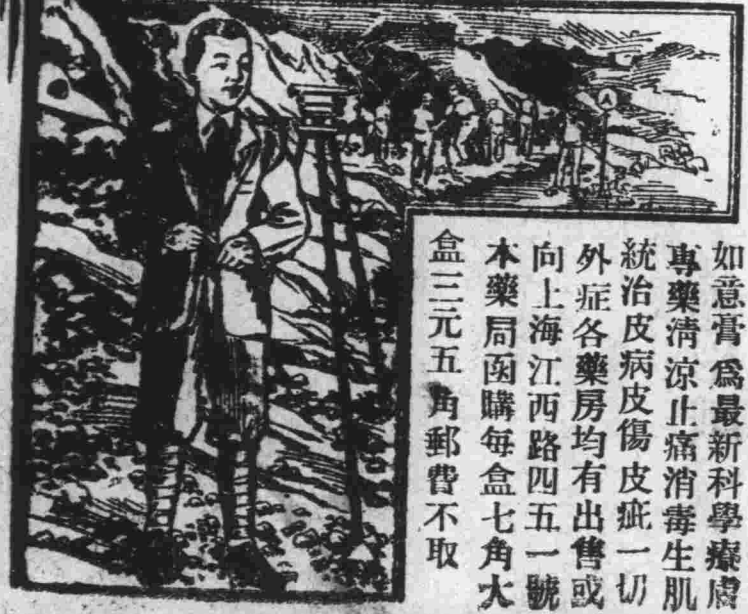 如意膏為最新科學療膚
專藥淸凉止痛消毒生肌
統治皮病皮傷皮疵一切
外症各藥房均有出售或
向上海江西路四五一號
本藥局函購每盒七角大
盒三元五角郵費不取
A